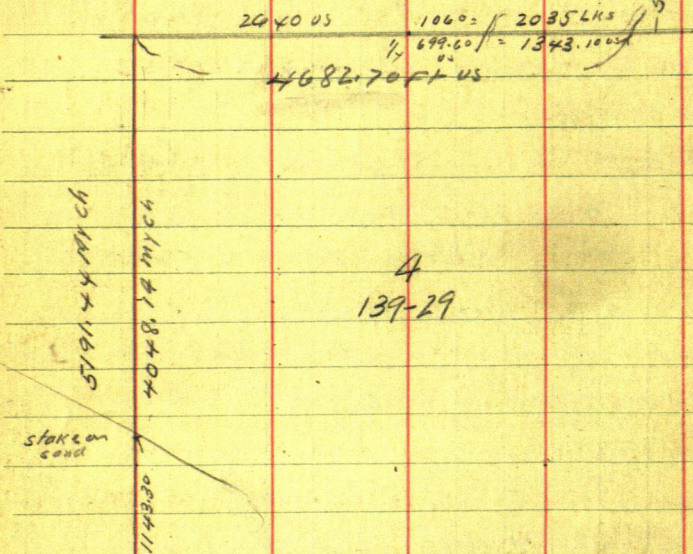 2640 US
1060 = 2035 LKS
1/4 699.60 = 1343.10 US
US
4682.70 Ft US
5191.44 My Ch
4048.14 my ch
4
139-29
stake on
sand
1143.30